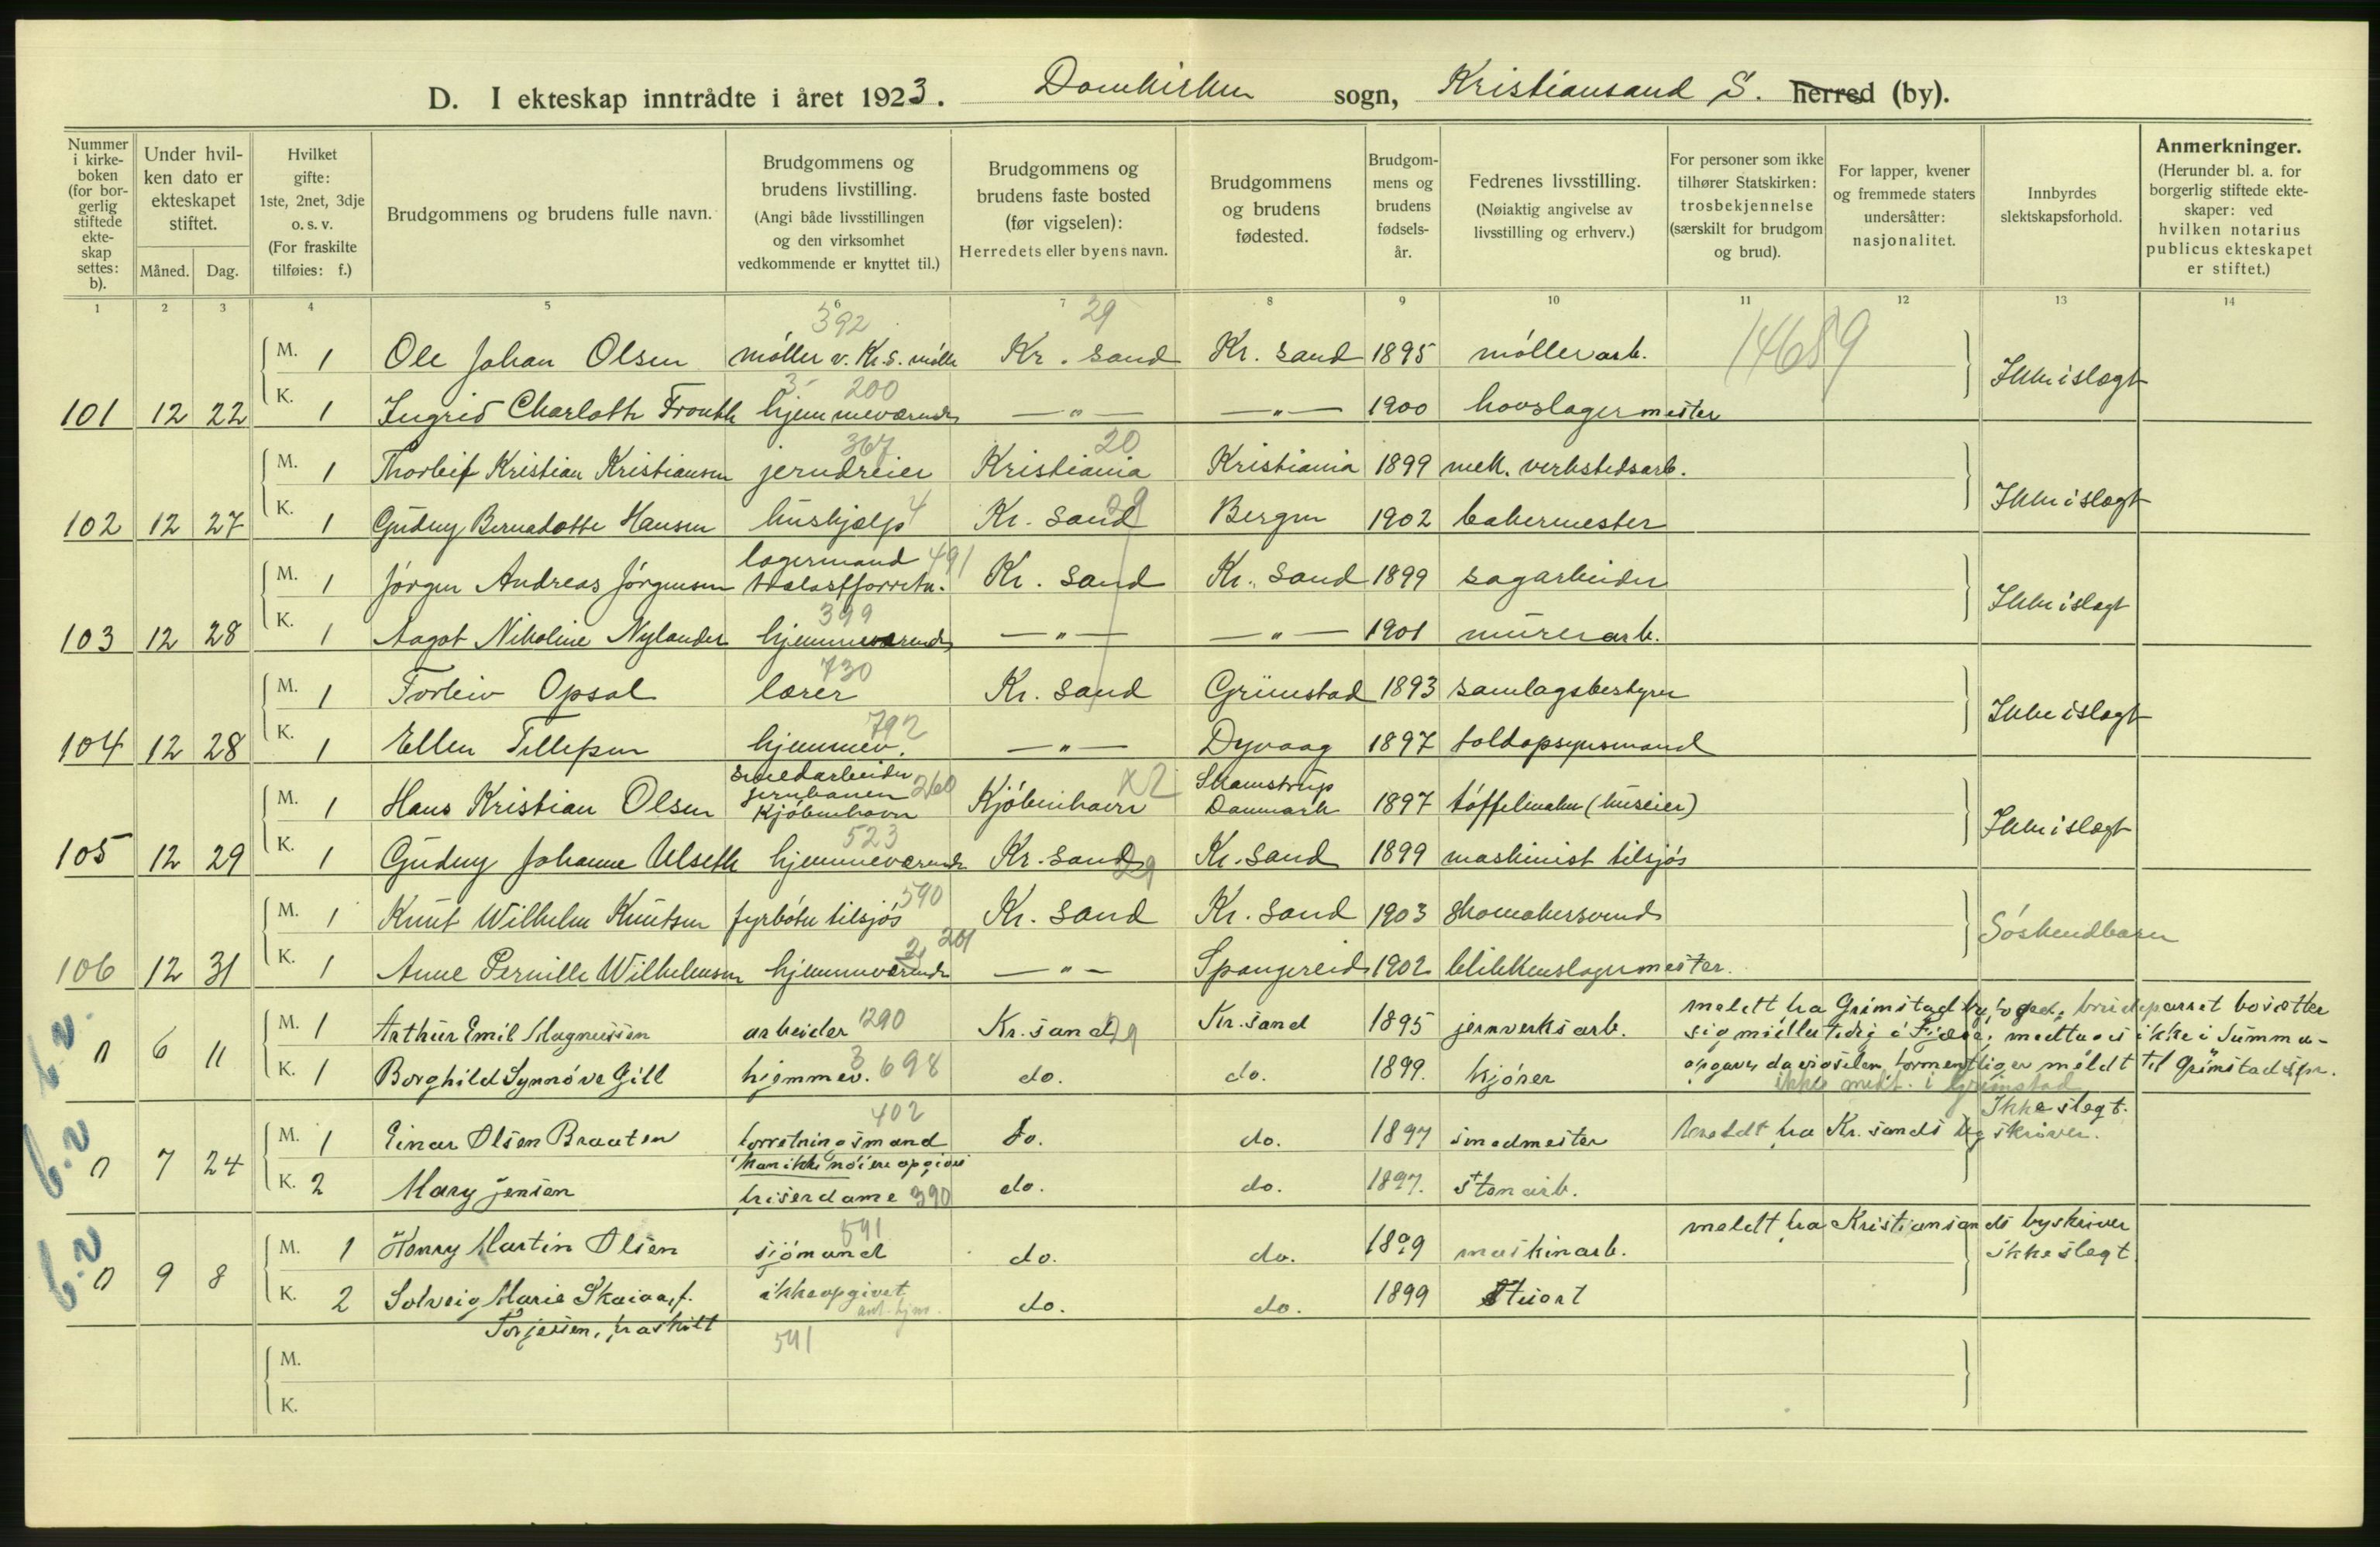 D. I ekteskap inntrådte i året 1923. Domkirken sogn, Kristiansand S. herred (by).
Nummer i kirkeboken (for borgerlig stiftede ekteskap settes: b).
Under hvilken dato er ekteskapet stiftet.
Måned.
Dag.
Hvilket gifte: 1ste, 2net, 3dje o. s. v. (For fraskilte tilføies: f.)
Brudgommens og brudens fulle navn.
Brudgommens og brudens livstilling. (Angi både livsstillingen og den virksomhet vedkommende er knyttet til.)
Brudgommens og brudens faste bosted (før vigselen): Herredets eller byens navn.
Brudgommens og brudens fødested.
Brudgommens og brudens fødselsår.
Fedrenes livsstilling. (Nøiaktig angivelse av livsstilling og erhverv.)
For personer som ikke tilhører Statskirken: trosbekjennelse (særskilt for brudgom og brud).
For lapper, kvener og fremmede staters undersåtter: nasjonalitet.
Innbyrdes slektskapsforhold.
Anmerkninger. (Herunder bl. a. for borgerlig stiftede ekteskaper: ved hvilken notarius publicus ekteskapet er stiftet.)
1 2 3 4 5 6 7 8 9 10 11 12 13 14
392 29 14689
M. 1 Ole Johan Olsen møller v. Kr.S. mølle Kr. Sand Kr. Sand 1895 møllerarb.
Ikke i slægt
3 200
101 12 22 K. 1 Ingrid Charlotte Fronth hjemmeværende —"— —"— 1900 hovslagermester
367 20
M. 1 Thorleif Kristian Kristiansen jerndreier Kristiania Kristiania 1899 mek. verkstedsarb.
Ikke i slægt
4 29
102 12 27 K. 1 Gudny Bernadotte Hansen hushjælp Kr. Sand Bergen 1902 bakermester
lagermand 491
M. 1 Jørgen Andreas Jørgensen Kr. Sand Kr. Sand 1899 sagarbeider
Ikke i slægt
399
103 12 28 K. 1 Aagot Nikoline Nylander hjemmeværende —"— —"— 1901 murerarb.
730
M. 1 Torleiv Opsal lærer Kr. Sand Grimstad 1893 samlagsbestyrer
Ikke i slægt
792
104 12 28 K. 1 Ellen Tellefsen hjemmev. —"— Dyvaag 1897 toldopsynsmand
smedarbeider
jernbanen 260 X2 Skamstrup
M. 1 Hans Kristian Olsen Kjøbenhavn Kjøbenhavn Danmark 1897 tøffelmaker (huseier)
Ikke i slægt
523
105 12 29 K. 1 Gudny Johanne Ulseth hjemmeværende Kr. Sand 29 Kr. Sand 1899 maskinist tilsjøs
590
M. 1 Knut Wilhelm Knutsen fyrbøter tilsjøs Kr. Sand Kr. Sand 1903 skomakersvend
Søskendbarn
201
106 12 31 K. 1 Anne Pernille Wilhelmsen hjemmeværende —"— Spangereid 1902 blikkenslagermester.
b.v.
M. 1 Arthur Emil Magnussen arbeider 1290 Kr. sand 29 Kr. sand 1895 jernverksarb.
meldt fra Grimstad byfoged, brudeparret bosætter
sig midlertidig i medtages ikke i Summa-
6 11 K. 1 Borghild Synnøve Gill hjemmev. 3 698 do. do. 1899. kjører
opgaver, da vigselen formentlig er meldt til Grimstad
ikke medt. i Grimstad
b.v
402 Ikke slegt.
M. 1 Einar Olsen Braaten forretningsmand do. do. 1897 smedmester meldt fra Kr. sands byskriver.
kan ikke nøiere opgives
7 24 K. 2 Mary Jensen friserdame 390 do. do. 1897. stenarb.
b.v
541
M. 1 Henry Martin Olsen sjømand do. do. 1899 maskinarb. meldt fra Kristiansands byskriver
ikke slegt
9 8 K. 2 Solveig Marie Skaiaa, f. ikke opgivet do. do. 1899 Stuert
ant. hjem.
Torjesen, fraskilt
541
M.
K.